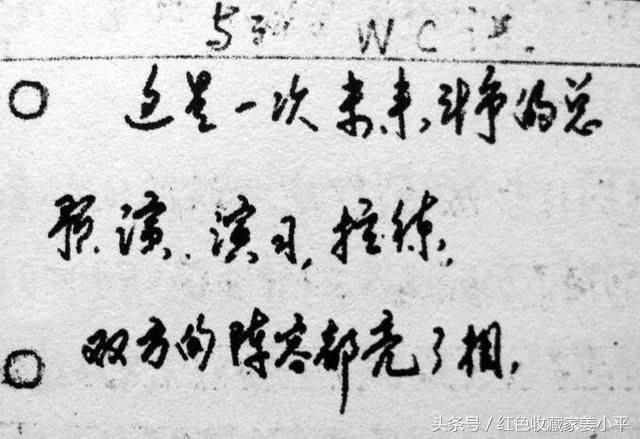 与 W C
这是一次未来斗争的总
预演、演习、拉练,
双方的阵容都亮了相,
头条号 / 红色收藏家姜小平